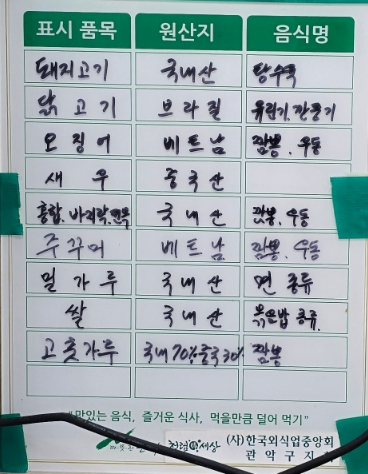 표시 품목 원산지 음식명
돼지고기 국내산 탕수육
닭고기 브라질 유린기, 깐풍기
오징어 베트남 짬뽕, 우동
새우 중국산
홍합, 바지락, 국내산 짬뽕, 우동
주꾸미 베트남 짬뽕, 우동
밀가루 국내산 면 종류
쌀 국내산 볶음밥 종류
고춧가루 국내70% 중국30% 짬뽕
"맛있는 음식, 즐거운 식사, 먹을만큼 덜어 먹기"
(사)한국외식업중앙회
관악구지